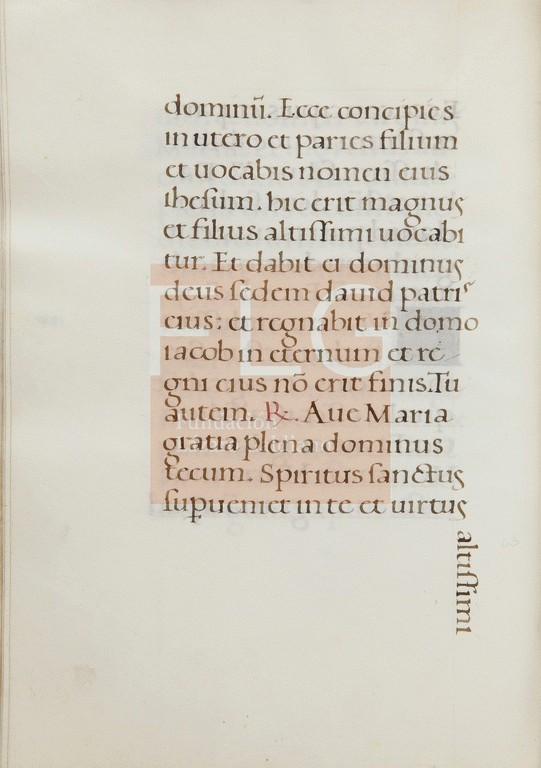 dominū. Ecce concipies
in utero et paries filium
et uocabis nomen eius
ihesum. hic erit magnus
et filius altissimi uocabi
tur. Et dabit ei dominus
deus sedem dauid patris
eius: et regnabit in domo
iacob in eternum et re
gni eius nō erit finis. Tu
autem. ℞. Aue Maria
gratia plena dominus
tecum. Spiritus sanctus
suꝑueniet in te et uirtus
altissimi
FLG
Fundación